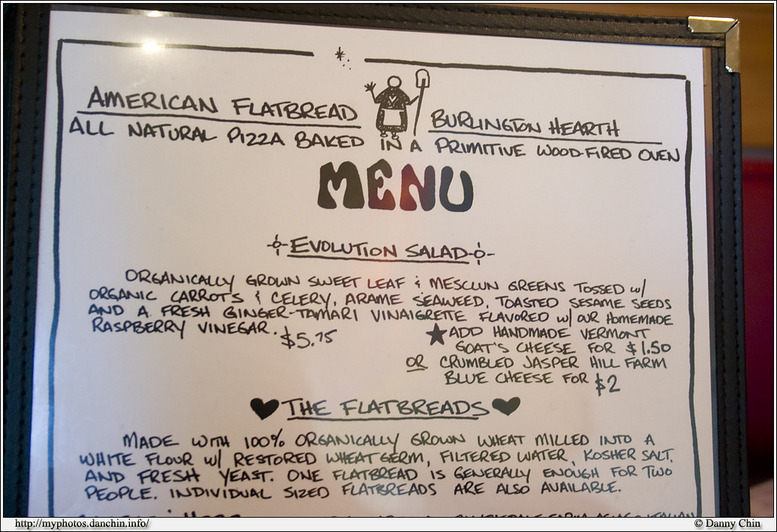 AMERICAN FLATBREAD BURLINGTON HEARTH
ALL NATURAL PIZZA BAKED IN A PRIMITIVE WOOD-FIRED OVEN
MENU
EVOLUTION SALAD
ORGANICALLY GROWN SWEET LEAF & MESCLUN GREENS TOSSED W/
ORGANIC CARROTS & CELERY, ARAME SEAWEED, TOASTED SESAME SEEDS
AND A FRESH GINGER-TAMARI VINAIGRETTE FLAVORED W/ OUR HOMEMADE
RASPBERRY VINEGAR. $5.75
★ADD HANDMADE VERMONT
GOAT'S CHEESE FOR $1.50
OR CRUMBLED JASPER HILL FARM
BLUE CHEESE FOR $2
♥ THE FLATBREADS ♥
MADE WITH 100% ORGANICALLY GROWN WHEAT MILLED INTO A
WHITE FLOUR W/ RESTORED WHEAT GERM, FILTERED WATER, KOSHER SALT,
AND FRESH YEAST. ONE FLATBREAD IS GENERALLY ENOUGH FOR TWO
PEOPLE. INDIVIDUAL SIZED FLATBREADS ARE ALSO AVAILABLE.
http://myphotos.danchin.info/ © Danny Chin